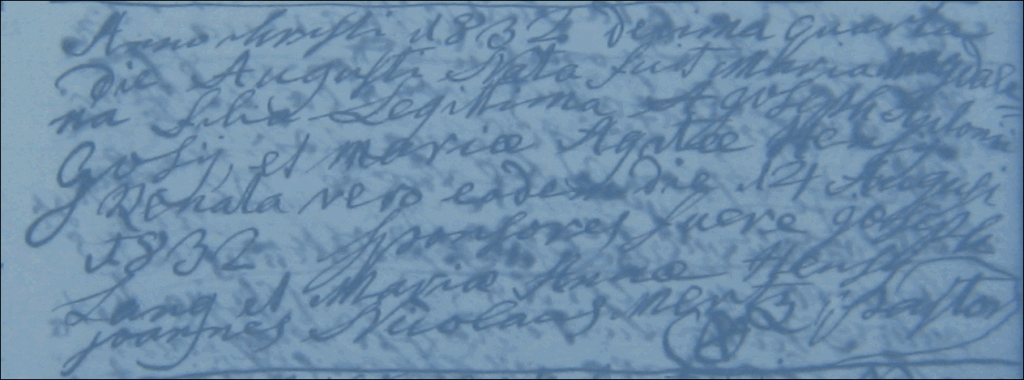 Anno christi 1832 Decima quarta
die Augusti Nata fuit maria magdale=
na filia Legittima Josephi Antoni
Gosij, et mariæ Agathæ
Renata vero eadem die 14 Augusti
1832 Sponsores fuere joseph
Lang et Mariæ Annæ
joannes Nicolaus mertz pastor